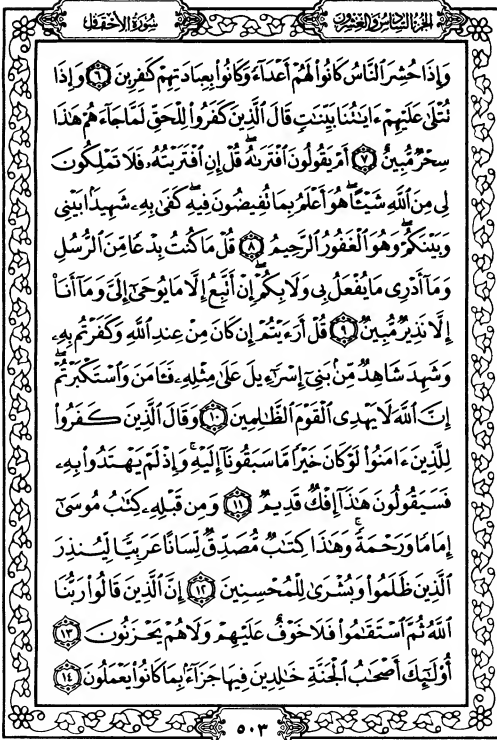 سُورَةُ الأَحْقَافِ
الجزء السادس والعشرون
وَإِذَا حُشِرَ ٱلنَّاسُ كَانُوا۟ لَهُمْ أَعْدَآءً وَكَانُوا۟ بِعِبَادَتِهِمْ كَٰفِرِينَ ٦ وَإِذَا
تُتْلَىٰ عَلَيْهِمْ ءَايَٰتُنَا بَيِّنَٰتٍ قَالَ ٱلَّذِينَ كَفَرُوا۟ لِلْحَقِّ لَمَّا جَآءَهُمْ هَٰذَا
سِحْرٌ مُّبِينٌ ٧ أَمْ يَقُولُونَ ٱفْتَرَىٰهُ ۖ قُلْ إِنِ ٱفْتَرَيْتُهُۥ فَلَا تَمْلِكُونَ
لِى مِنَ ٱللَّهِ شَيْـًٔا ۖ هُوَ أَعْلَمُ بِمَا تُفِيضُونَ فِيهِ ۖ كَفَىٰ بِهِۦ شَهِيدًۢا بَيْنِى
وَبَيْنَكُمْ ۖ وَهُوَ ٱلْغَفُورُ ٱلرَّحِيمُ ٨ قُلْ مَا كُنتُ بِدْعًا مِّنَ ٱلرُّسُلِ
وَمَآ أَدْرِى مَا يُفْعَلُ بِى وَلَا بِكُمْ ۖ إِنْ أَتَّبِعُ إِلَّا مَا يُوحَىٰٓ إِلَىَّ وَمَآ أَنَا۠
إِلَّا نَذِيرٌ مُّبِينٌ ٩ قُلْ أَرَءَيْتُمْ إِن كَانَ مِنْ عِندِ ٱللَّهِ وَكَفَرْتُم بِهِۦ
وَشَهِدَ شَاهِدٌ مِّنۢ بَنِىٓ إِسْرَٰٓءِيلَ عَلَىٰ مِثْلِهِۦ فَـَٔامَنَ وَٱسْتَكْبَرْتُمْ ۖ
إِنَّ ٱللَّهَ لَا يَهْدِى ٱلْقَوْمَ ٱلظَّٰلِمِينَ ١٠ وَقَالَ ٱلَّذِينَ كَفَرُوا۟
لِلَّذِينَ ءَامَنُوا۟ لَوْ كَانَ خَيْرًا مَّا سَبَقُونَآ إِلَيْهِ ۚ وَإِذْ لَمْ يَهْتَدُوا۟ بِهِۦ
فَسَيَقُولُونَ هَٰذَآ إِفْكٌ قَدِيمٌ ١١ وَمِن قَبْلِهِۦ كِتَٰبُ مُوسَىٰٓ
إِمَامًا وَرَحْمَةً ۚ وَهَٰذَا كِتَٰبٌ مُّصَدِّقٌ لِّسَانًا عَرَبِيًّا لِّيُنذِرَ
ٱلَّذِينَ ظَلَمُوا۟ وَبُشْرَىٰ لِلْمُحْسِنِينَ ١٢ إِنَّ ٱلَّذِينَ قَالُوا۟ رَبُّنَا
ٱللَّهُ ثُمَّ ٱسْتَقَٰمُوا۟ فَلَا خَوْفٌ عَلَيْهِمْ وَلَا هُمْ يَحْزَنُونَ ١٣
أُو۟لَٰٓئِكَ أَصْحَٰبُ ٱلْجَنَّةِ خَٰلِدِينَ فِيهَا جَزَآءًۢ بِمَا كَانُوا۟ يَعْمَلُونَ ١٤
٥٠٣